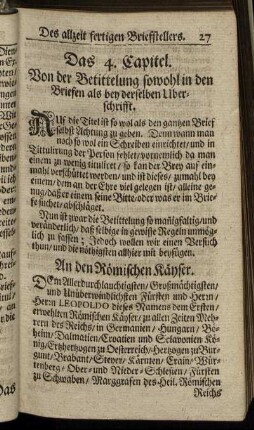 Des allzeit fertigen Briefstellers. 27
Das 4. Capitel.
Von der Betittelung sowohl in den
Briefen als bey derselben Uber-
schrifft.
AUf die Titel ist so wol als den gantzen Brief
selbst Achtung zu geben. Denn wann man
noch so wol ein Schreiben einrichtet/ und in
Titulirung der Person fehlet/ vornemlich da man
einem zu wenig titulirt/ so kan der Brey auf ein-
mahl verschüttet werden/ und ist dieses/ zumahl bey
einem/ dem an der Ehre viel gelegen ist/ alleine ge-
nug/ daß er einem seine Bitte/ oder was er im Brie-
fe suchet/ abschläget.
Nun ist zwar die Betittelung so mañigfaltig/ und
veränderlich/ daß selbige in gewisse Regeln unmög-
lich zu fassen; Jedoch wollen wir einen Versuch
thun/ und die nöthigsten allhier mit beyfügen.
An den Römischen Käyser.
DEm Allerdurchlauchtigsten/ Großmächtigsten/
und Unüberwindlichsten Fürsten und Herrn/
Herrn LEOPOLDO dieses Namens dem Ersten/
erwehlten Römischen Käyser/ zu allen Zeiten Meh-
rern des Reichs/ in Germanien/ Hungarn/ Bö-
heim/ Dalmatien/ Croatien und Sclavonien Kö-
nig/ Ertzhertzogen zu Oesterreich/ Hertzogen zu Bur-
gunt/ Brabant/ Steyer/ Kärnten/ Crain/ Wür-
tenberg/ Ober- und Nieder-Schlesien/ Fürsten
zu Schwaben/ Marggrafen des Heil. Römischen
Reichs